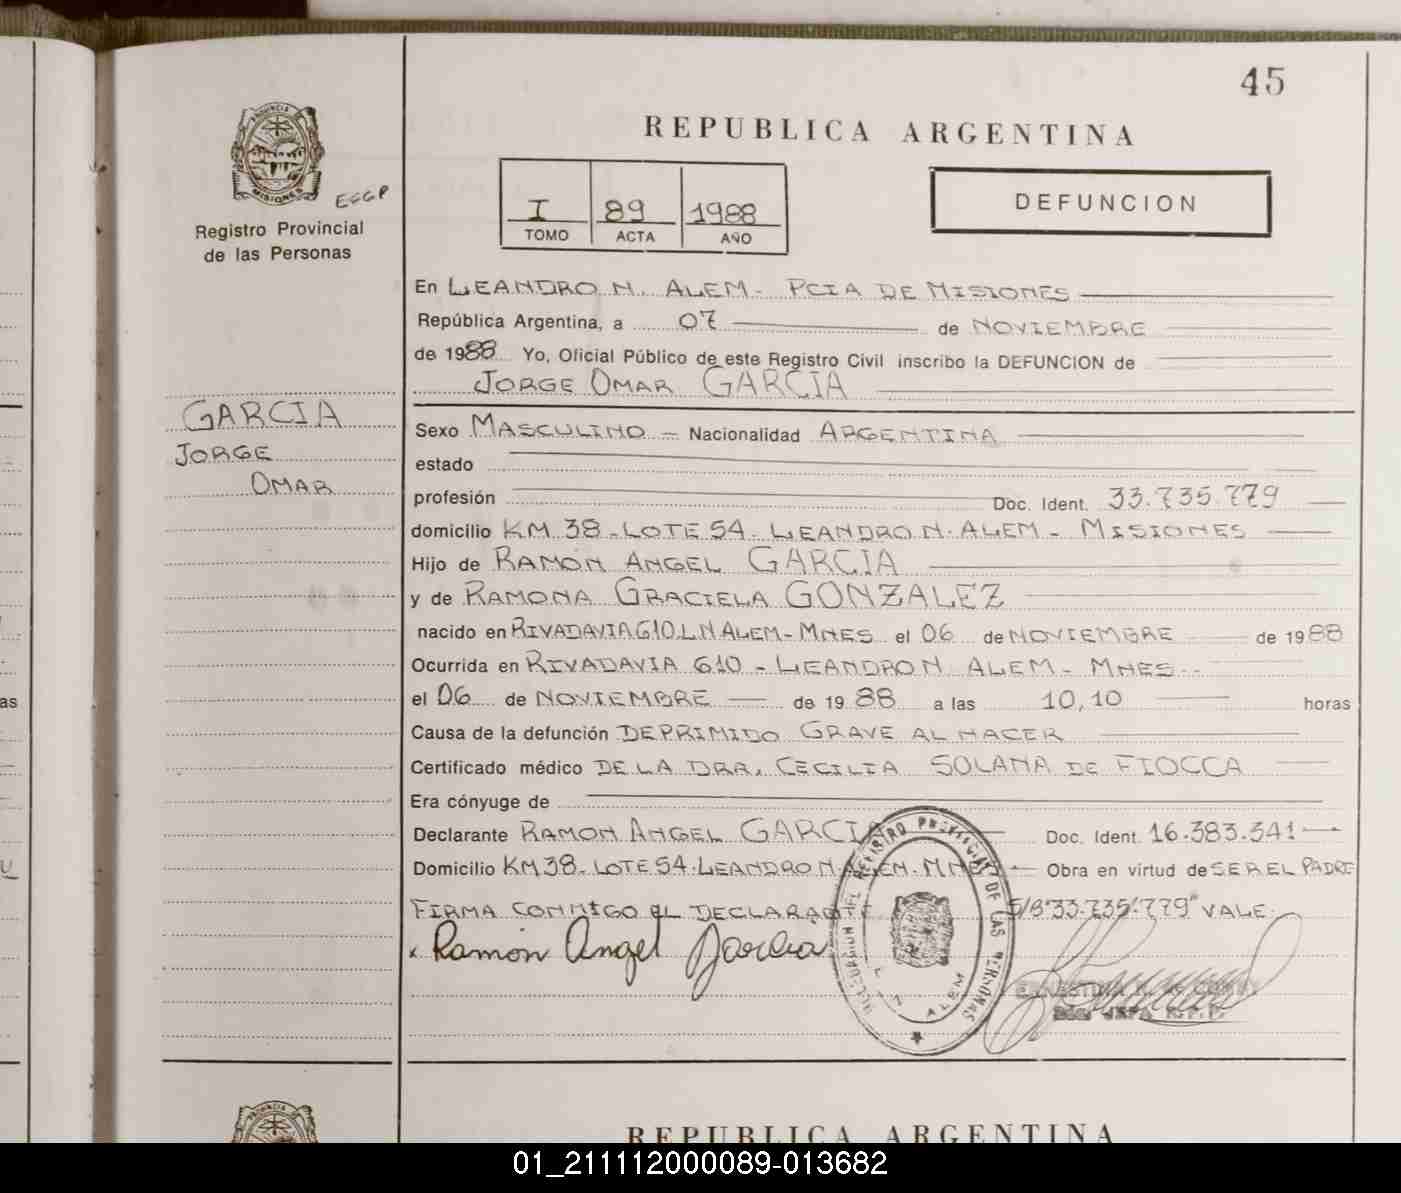 45
REPUBLICA ARGENTINA
PROVINCIA DE
MISIONES
Registro Provincial
de las Personas
I 89 1988
TOMO ACTA AÑO
DEFUNCION
En LEANDRO N. ALEM - PCIA DE MISIONES
República Argentina, a 07 de NOVIEMBRE
de 1988 Yo, Oficial Público de este Registro Civil inscribo la DEFUNCION de
JORGE OMAR GARCIA
GARCIA
JORGE
OMAR
Sexo MASCULINO - Nacionalidad ARGENTINA
estado
profesión Doc. Ident. 33.735.779
domicilio KM 38 - LOTE 54 - LEANDRO N. ALEM - MISIONES
Hijo de RAMON ANGEL GARCIA
y de RAMONA GRACIELA GONZALEZ
nacido en RIVADAVIA 610 L N ALEM - MNES el 06 de NOVIEMBRE de 1988
Ocurrida en RIVADAVIA 610 - LEANDRO N ALEM - MNES
el 06 de NOVIEMBRE de 1988 a las 10,10 horas
Causa de la defunción DEPRIMIDO GRAVE AL NACER
Certificado médico DE LA DRA. CECILIA SOLANA DE FIOCCA
Era cónyuge de
Declarante RAMON ANGEL GARCIA Doc. Ident. 16.383.341
Domicilio KM 38 - LOTE 54 - LEANDRO N. ALEM - MNES Obra en virtud de SER EL PADRE
FIRMA CONMIGO EL DECLARANTE S/B "33.735.779" VALE.
Ramón Angel Garcia
DELEGACION DEL REGISTRO PROVINCIAL DE LAS PERSONAS
L. N. ALEM
REPUBLICA ARGENTINA
01_211112000089-013682